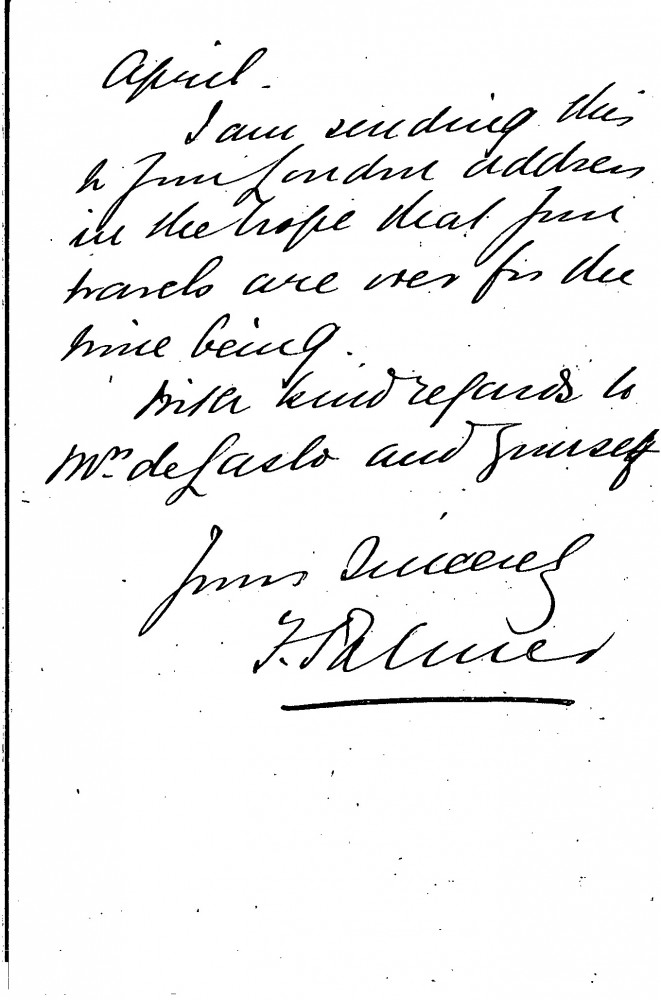 April.
I am sending this
to your London address
in the hope that your
travels are over for the
time being.
With kind regards to
Mrs de Laslo and yourself
Yours Sincerely
F. Palmer